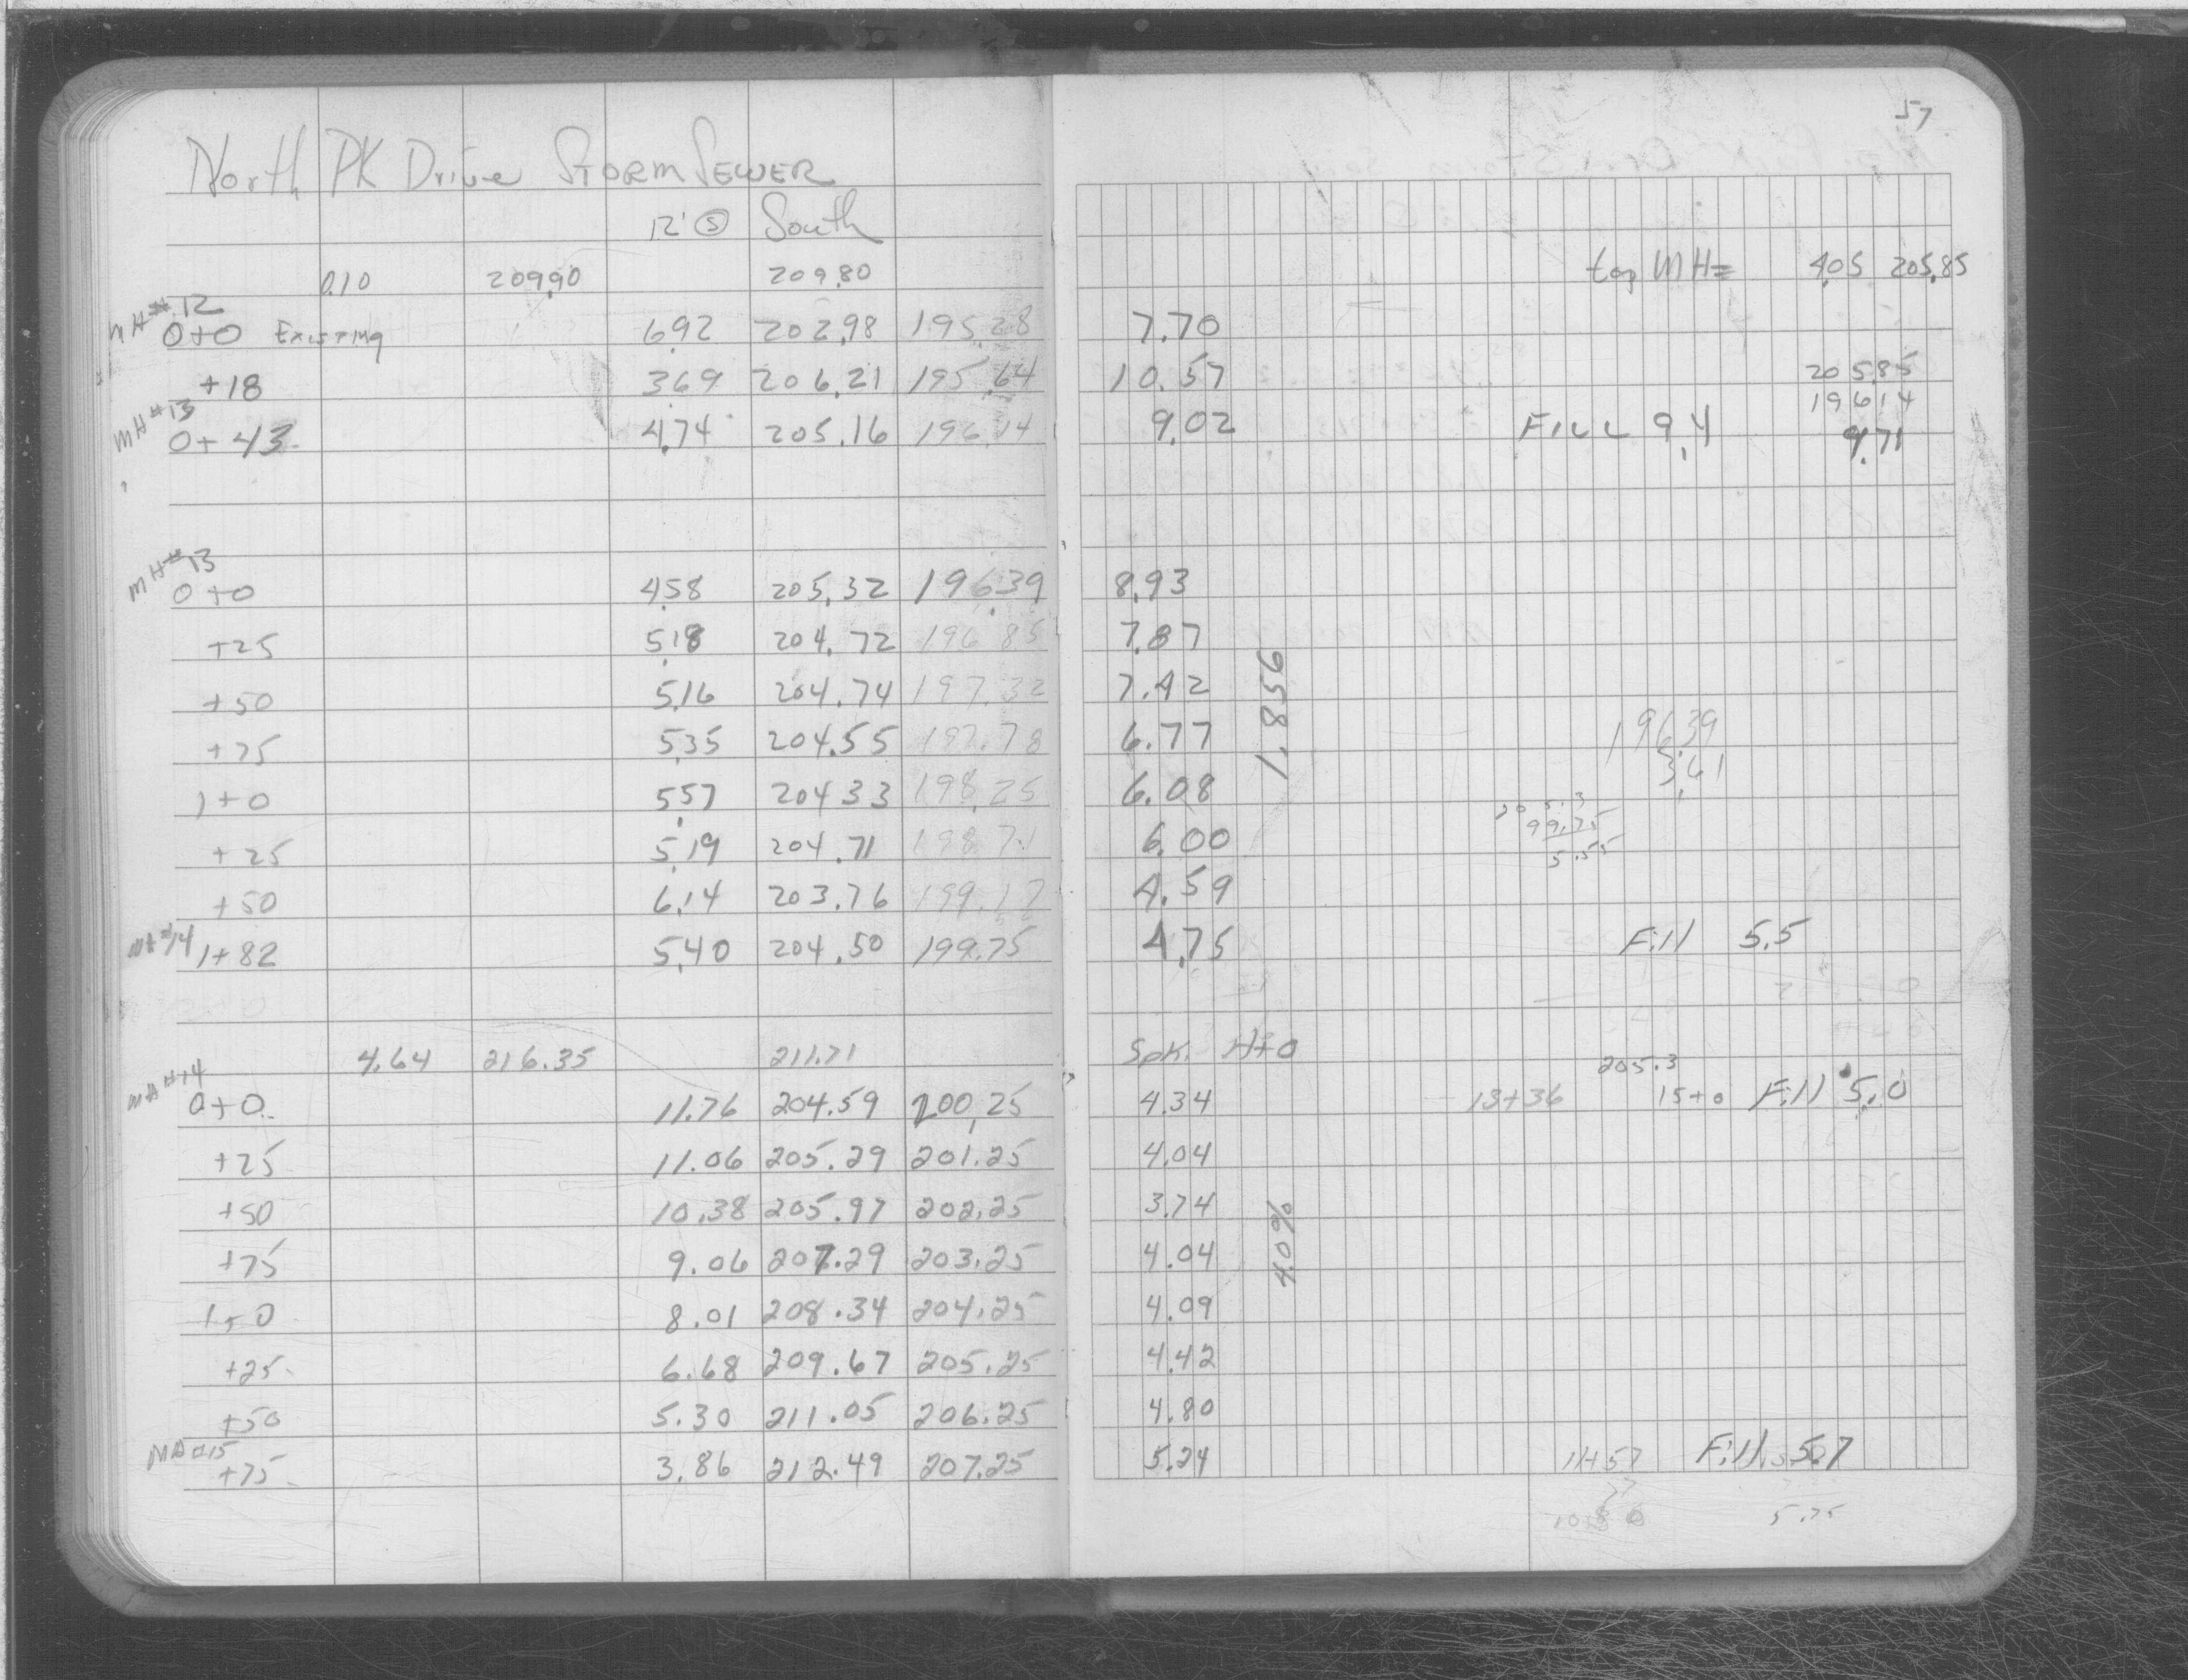 57
North PK Drive STORM SEWER
12' Ⓢ South
0.10 209.90 209.80 top MH= 4.05 205.85
MH#12
0+0 Existing 6.92 202.98 195.28 7.70
+18 3.69 206.21 195.64 10.57 205.85
MH#13 196.14
0+43 4.74 205.16 196.14 9.02 FILL 9.4 9.71
MH#13
0+0 4.58 205.32 196.39 8.93
+25 5.18 204.72 196.85 7.87
+50 5.16 204.74 197.32 7.42 1.856
+75 5.35 204.55 197.78 6.77 196.39
3.61
1+0 5.57 204.33 198.25 6.08
+25 5.19 204.71 198.71 6.00 99.75
5.55
+50 6.14 203.76 199.17 4.59
MH#14 1+82 5.40 204.50 199.75 4.75 Fill 5.5
4.64 216.35 211.71 Spk.
MH#14 205.3
0+0 11.76 204.59 200.25 4.34 13+36 15+0 Fill 5.0
+25 11.06 205.29 201.25 4.04
+50 10.38 205.97 202.25 3.74
+75 9.06 207.29 203.25 4.04 4.0%
1+0 8.01 208.34 204.25 4.09
+25 6.68 209.67 205.25 4.42
+50 5.30 211.05 206.25 4.80
MH#15
+75 3.86 212.49 207.25 5.24 11+57 Fill 5.7
77
10 80 5.25